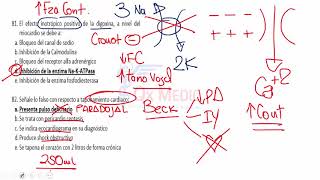 ↑ Fza Cont.
3 Na
81. El efecto inotrópico positivo de la digoxina, a nivel del
miocardio se debe a:
a. Bloqueo del canal de sodio
b. Inhibición de la Calmodulina
c. Bloqueo del receptor alfa adrenérgico
Inhibición de la enzima Na-K-ATPasa
e. Inhibición de la enzima fosfodiesterasa
Cronot ⊖
↓ FC
↑ Tono Vagal
2K
+ + +
- - -
Ca+2
↑ Cont
82. Señale lo falso con respecto a taponamiento cardiaco:
a. Presenta pulso
PARADOJAL
b. Se trata con
c. Se indica ecocardiograma en su diagnóstico
d. Produce shock obstructivo
e. Se tapona el corazón con 2 litros de forma crónica
250ml
Beck
↓ PA
IY